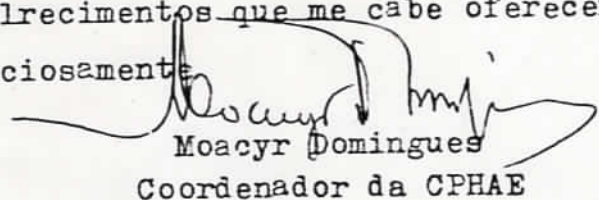 lrecimentos que me cabe oferece
ciosamente
Moacyr Domingues
Coordenador da CPHAE